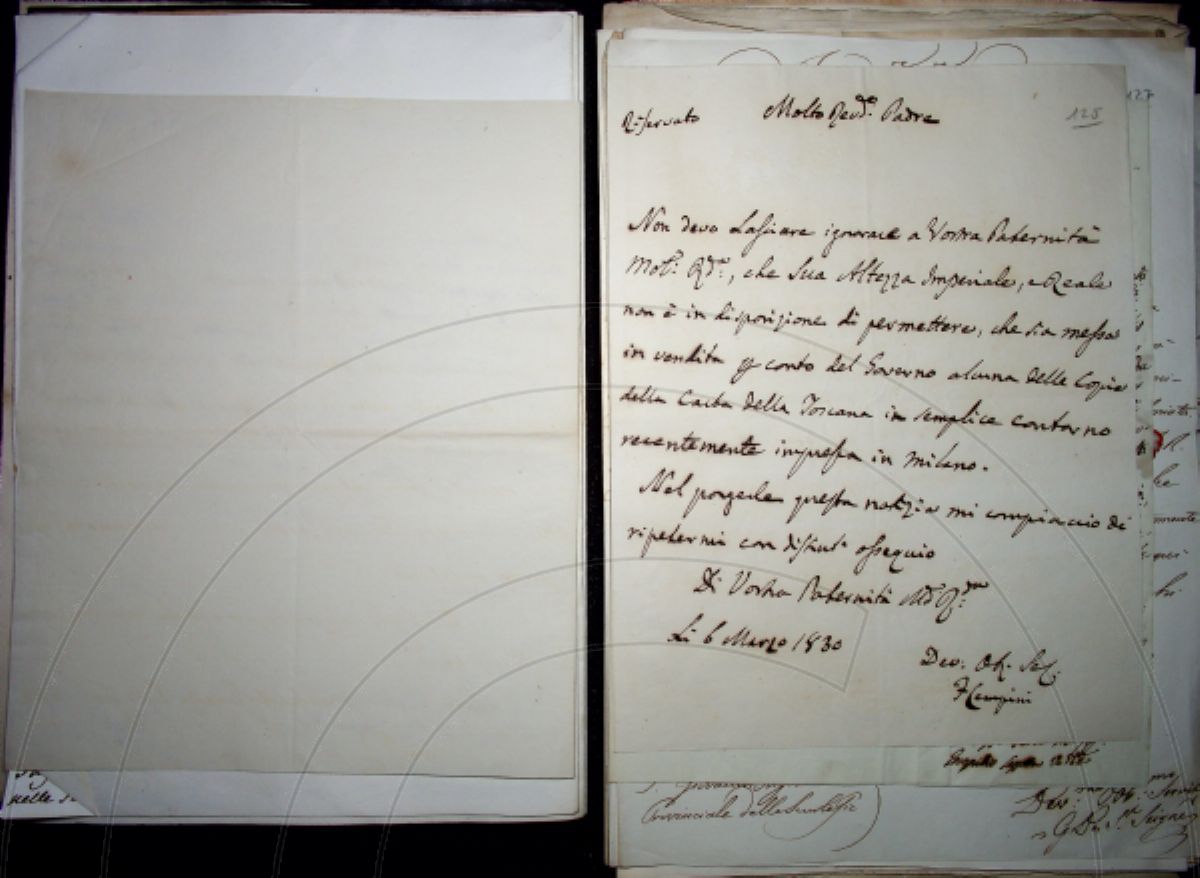 nelle s
Riservato
Molto Revdo. Padre
125
127
Non devo lasciare ignorare a Vostra Paternità
Mol: Rda:, che Sua Altezza Imperiale, e Reale
non è in disposizione di permettere, che sia messa
in vendita p conto del Governo alcuna delle Copie
della Carta della Toscana in semplice contorno
recentemente impressa in Milano.
Nel porgerle questa notizia mi compiaccio di
ripetermi con distinto ossequio
Di Vostra Paternità Md Rda
Li 6 Marzo 1830
Dev. Ob. Ser.
F Cempini
Provinciale delle Scuole Pie
Dev.mo Obb.mo Servi